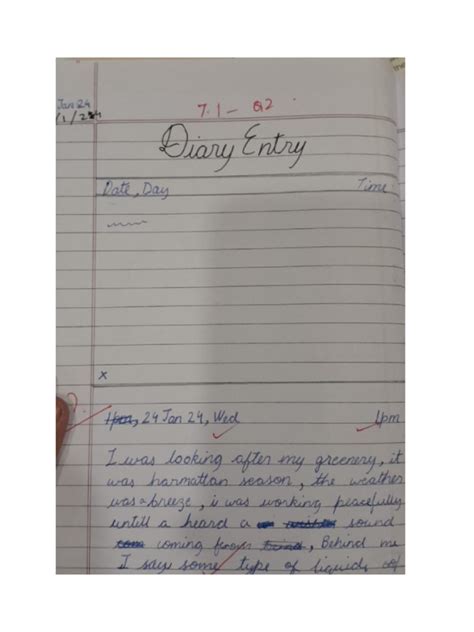 Jan 24
7.1 - Q2
Diary Entry
Date, Day Time
x
24 Jan 24, Wed 1pm
I was looking after my greenery, it
was harmattan season, the weather
was a breeze, i was working peacefully
untill a heard a sound
coming from, Behind me
I say some type of liquid of